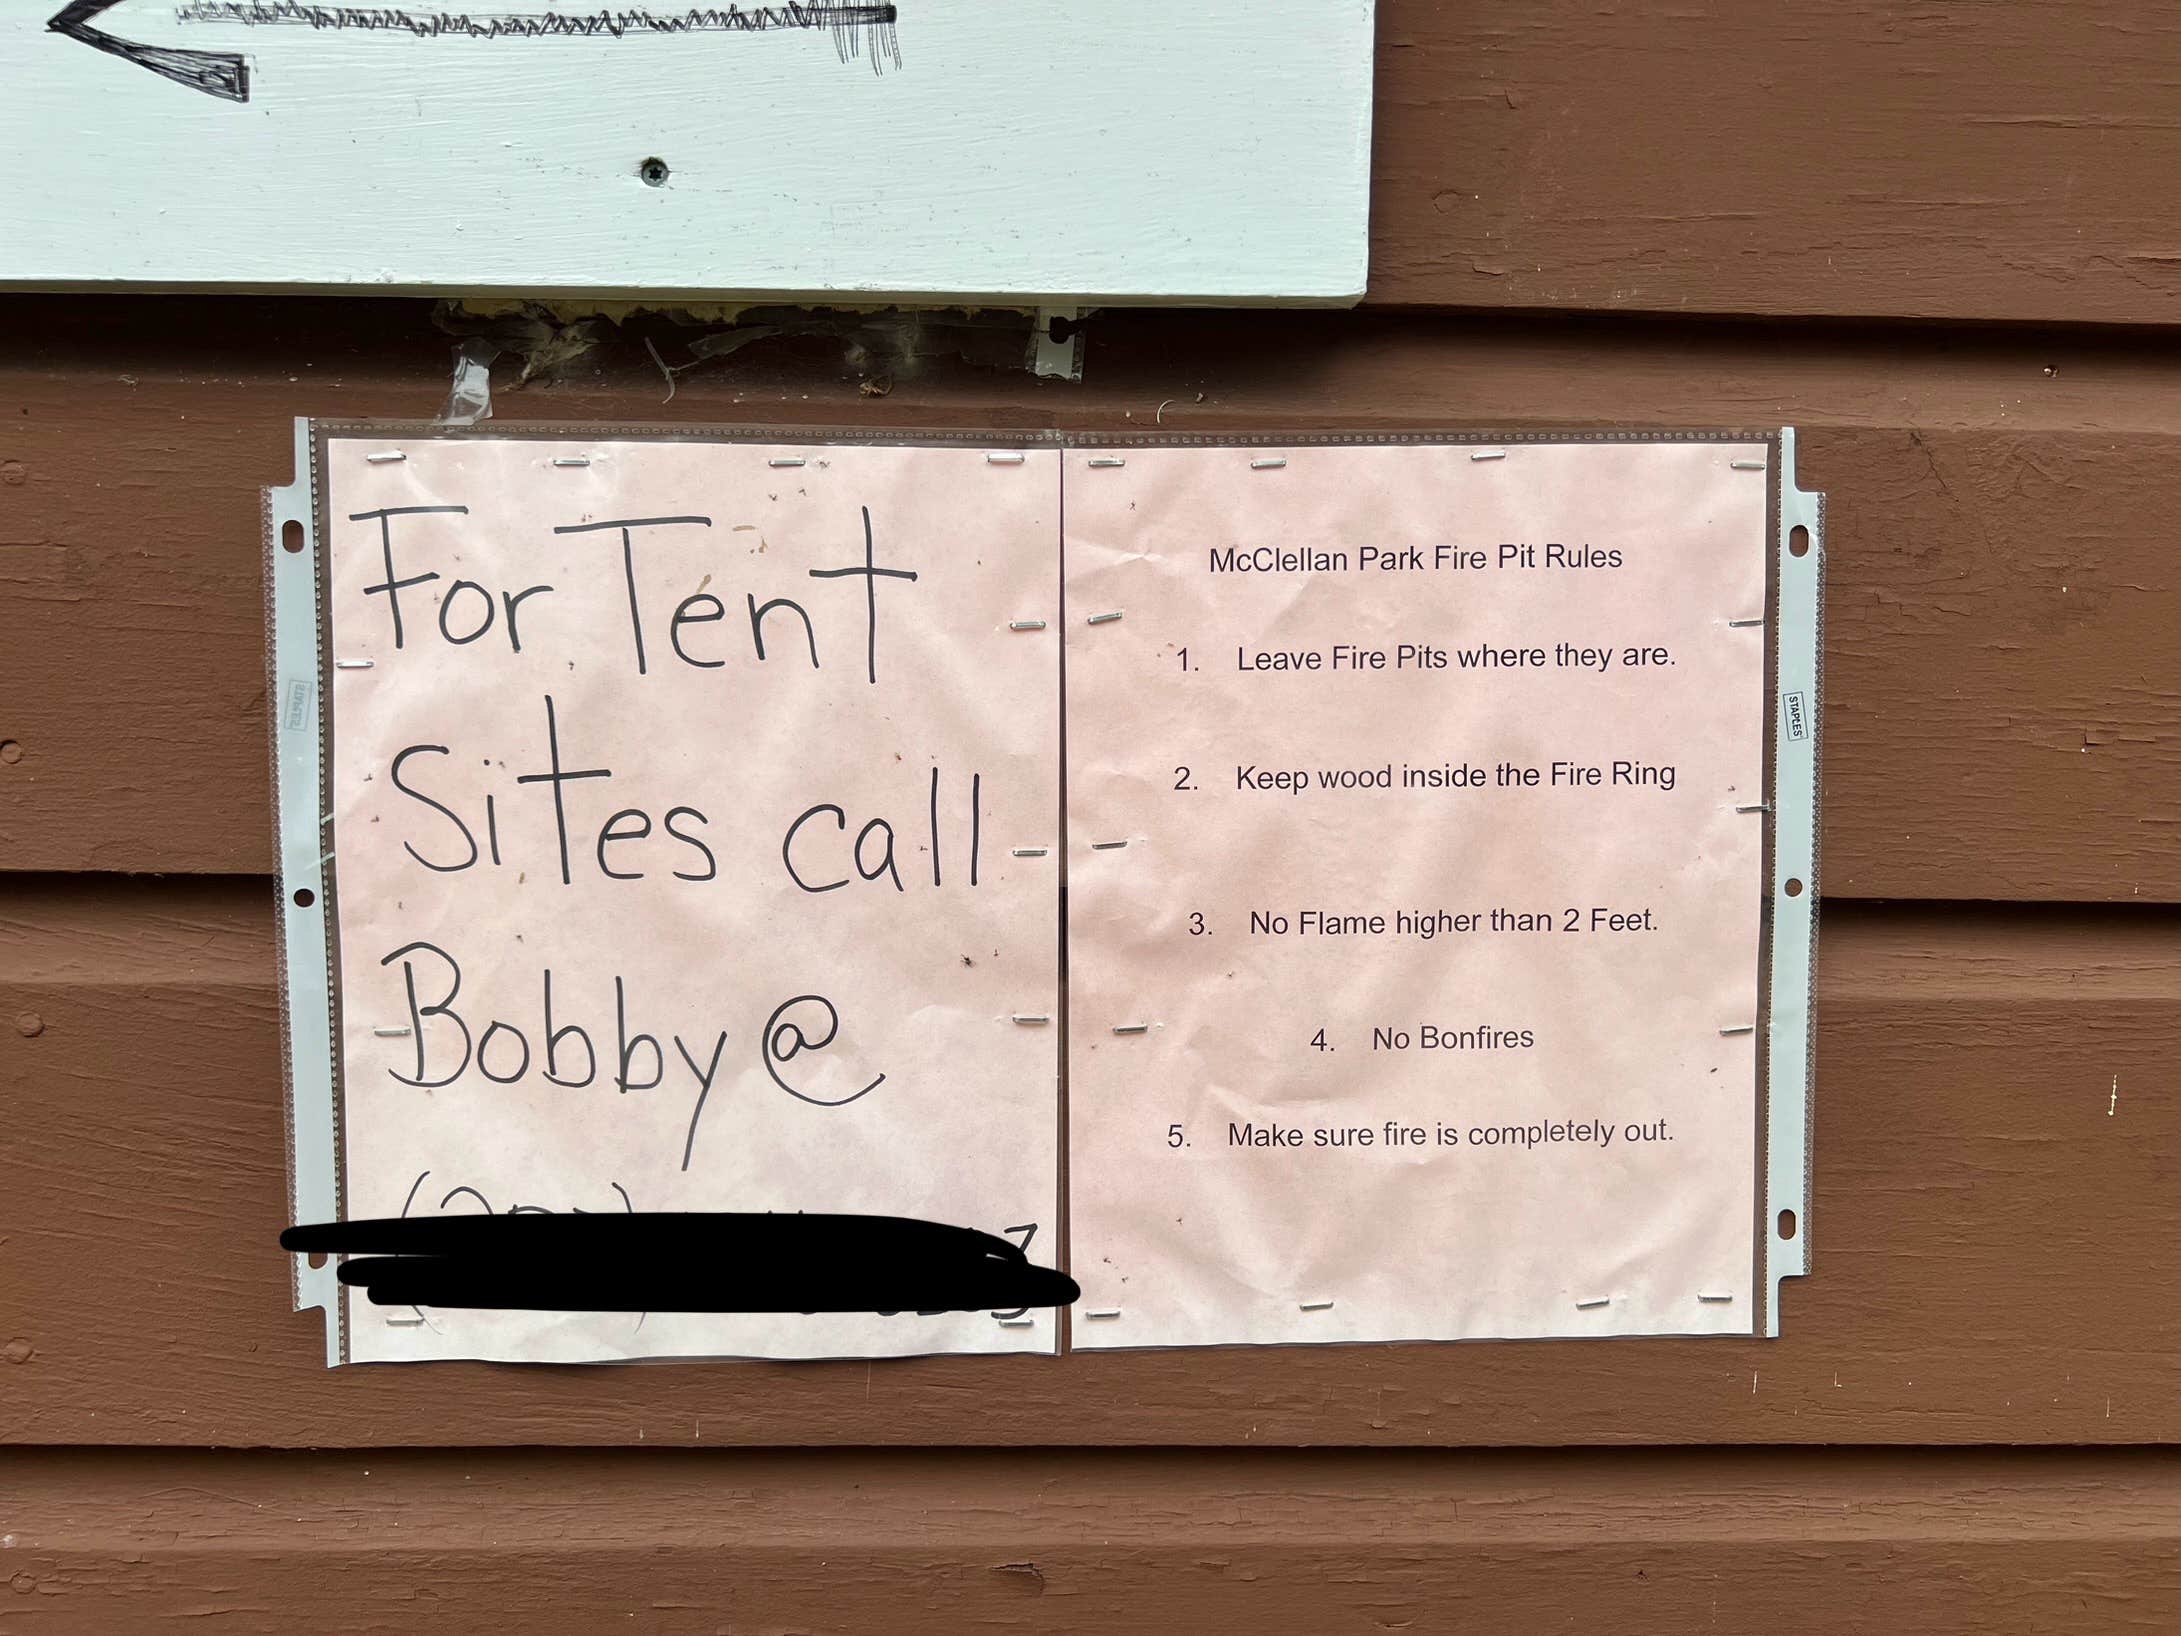 For Tent
Sites call
Bobby @
McClellan Park Fire Pit Rules
1. Leave Fire Pits where they are.
2. Keep wood inside the Fire Ring
3. No Flame higher than 2 Feet.
4. No Bonfires
5. Make sure fire is completely out.
STAPLES
STAPLES